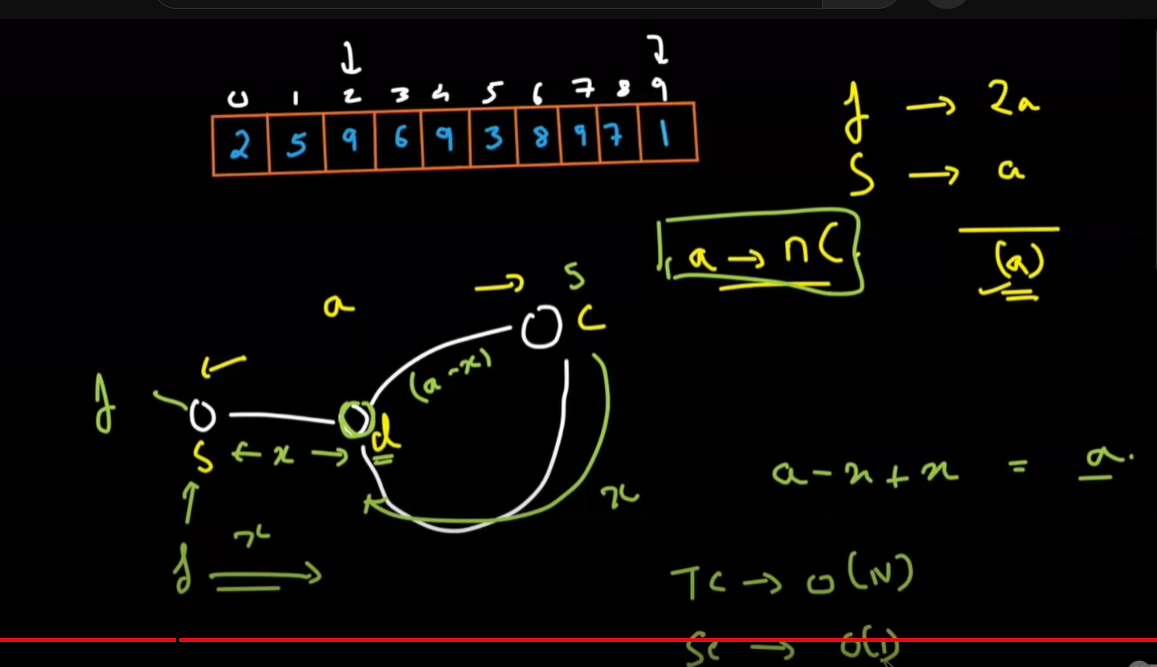 0 1 2 3 4 5 6 7 8 9
2 5 9 6 9 3 8 9 7 1
f → 2a
S → a
(a)
a → nC
a
S
C
(a-x)
f
S
← x →
d
x
f
x
a-x+x = a.
TC → O(N)
SC → O(1)